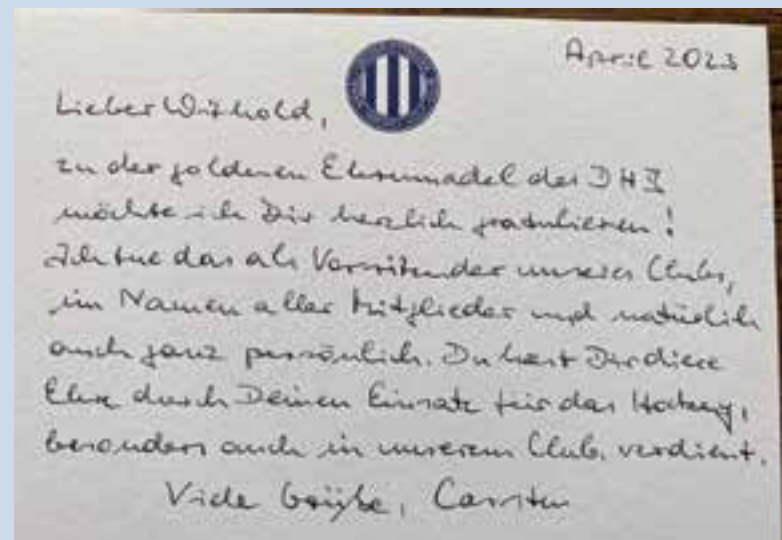 April 2023
Lieber Withold,
zu der goldenen Ehrennadel des DHB
möchte ich Dir herzlich gratulieren!
Ich tue das als Vorsitzender unseres Clubs,
im Namen aller Mitglieder und natürlich
auch ganz persönlich. Du hast Dir diese
Ehre durch Deinen Einsatz für das Hockey,
besonders auch in unserem Club, verdient.
Viele Grüße, Carsten